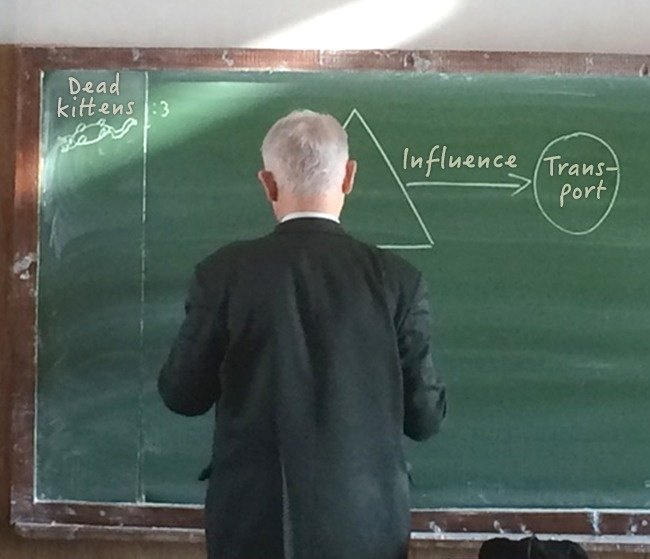 Dead
kittens
:3
Influence
Trans-
port